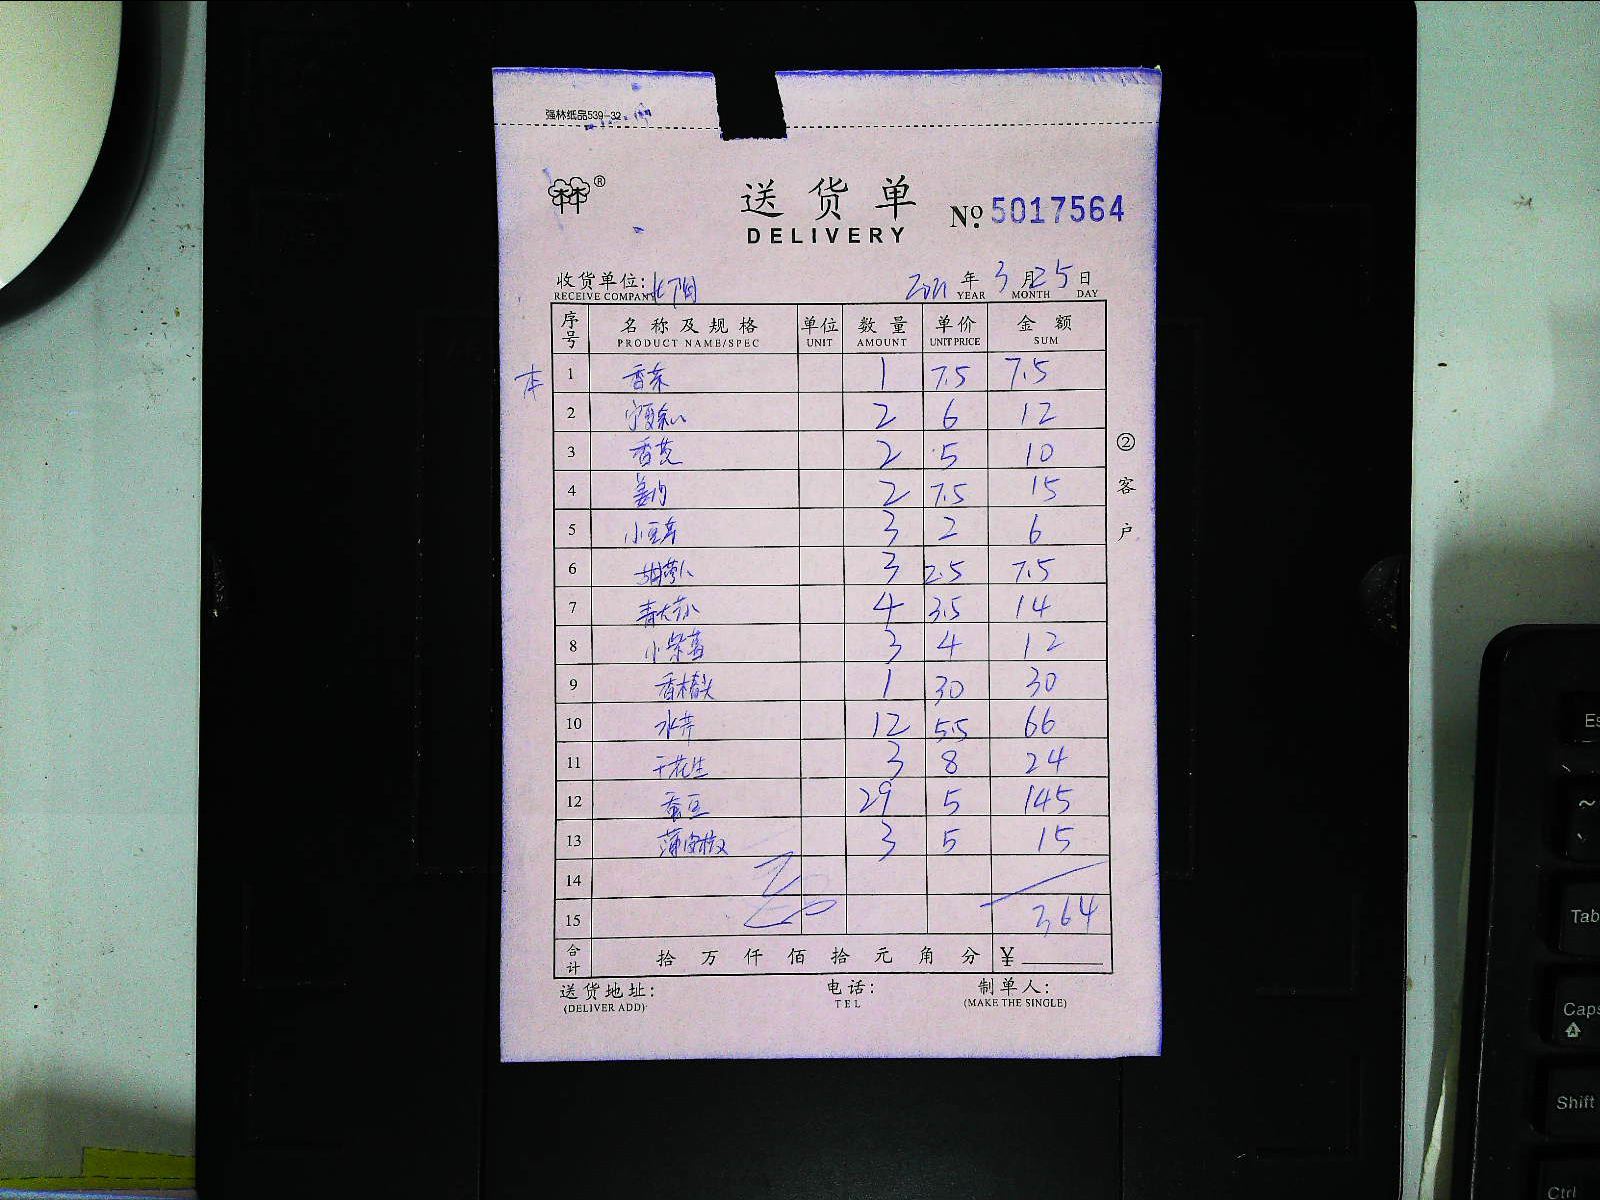 强林纸品539-32
®
送货单
DELIVERY
No. 5017564
收货单位:
RECEIVE COMPANY
2021 年 3 月 25 日
YEAR MONTH DAY
序号 名称及规格 单位 数量 单价 金额
PRODUCT NAME/SPEC UNIT AMOUNT UNIT PRICE SUM
本
1 香菜 1 7.5 7.5
2 宁夏菜心 2 6 12
3 香芫 2 5 10
4 姜肉 2 7.5 15
5 小豆芽 3 2 6
6 胡萝卜 3 2.5 7.5
7 青大 4 3.5 14
8 小紫薯 3 4 12
9 香椿头 1 30 30
10 水芹 12 5.5 66
11 干花生 3 8 24
12 蚕豆 29 5 145
13 薄皮椒 3 5 15
14
15 364
合计 拾 万 仟 佰 拾 元 角 分 ¥
② 客户
送货地址:
(DELIVER ADD)
电话:
TEL
制单人:
(MAKE THE SINGLE)
Es
~
Tab
Caps
Shift
Ctrl